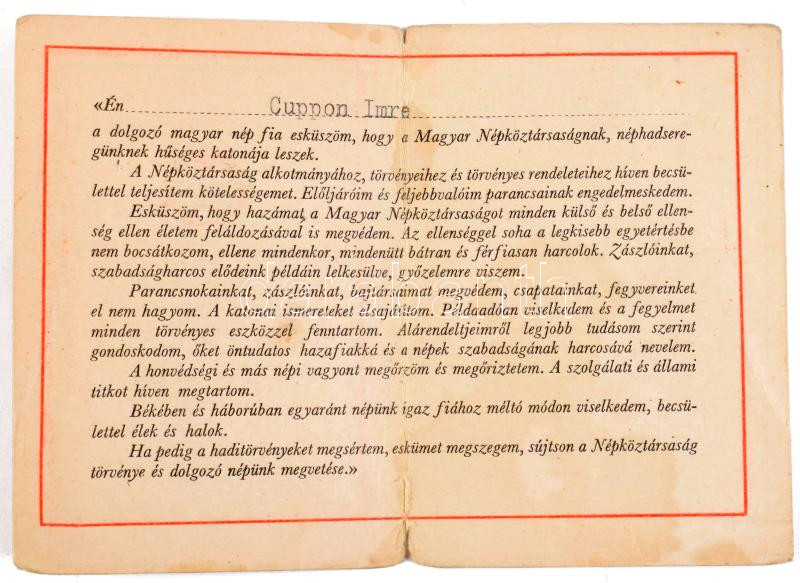 «Én Cuppon Imre
a dolgozó magyar nép fia esküszöm, hogy a Magyar Népköztársaságnak, néphadsere-
günknek hűséges katonája leszek.
A Népköztársaság alkotmányához, törvényeihez és törvényes rendeleteihez híven becsü-
lettel teljesítem kötelességemet. Előljáróim és feljebbvalóim parancsainak engedelmeskedem.
Esküszöm, hogy hazámat, a Magyar Népköztársaságot minden külső és belső ellen-
ség ellen életem feláldozásával is megvédem. Az ellenséggel soha a legkisebb egyetértésbe
nem bocsátkozom, ellene mindenkor, mindenütt bátran és férfiasan harcolok. Zászlóinkat,
szabadságharcos elődeink példáin lelkesülve, győzelemre viszem.
Parancsnokainkat, zászlóinkat, bajtársaimat megvédem, csapatainkat, fegyvereinket
el nem hagyom. A katonai ismereteket elsajátítom. Példaadóan viselkedem és a fegyelmet
minden törvényes eszközzel fenntartom. Alárendeltjeimről legjobb tudásom szerint
gondoskodom, őket öntudatos hazafiakká és a népek szabadságának harcosává nevelem.
A honvédségi és más népi vagyont megőrzöm és megőriztetem. A szolgálati és állami
titkot híven megtartom.
Békében és háborúban egyaránt népünk igaz fiához méltó módon viselkedem, becsü-
lettel élek és halok.
Ha pedig a haditörvényeket megsértem, eskümet megszegem, sújtson a Népköztársaság
törvénye és dolgozó népünk megvetése.»